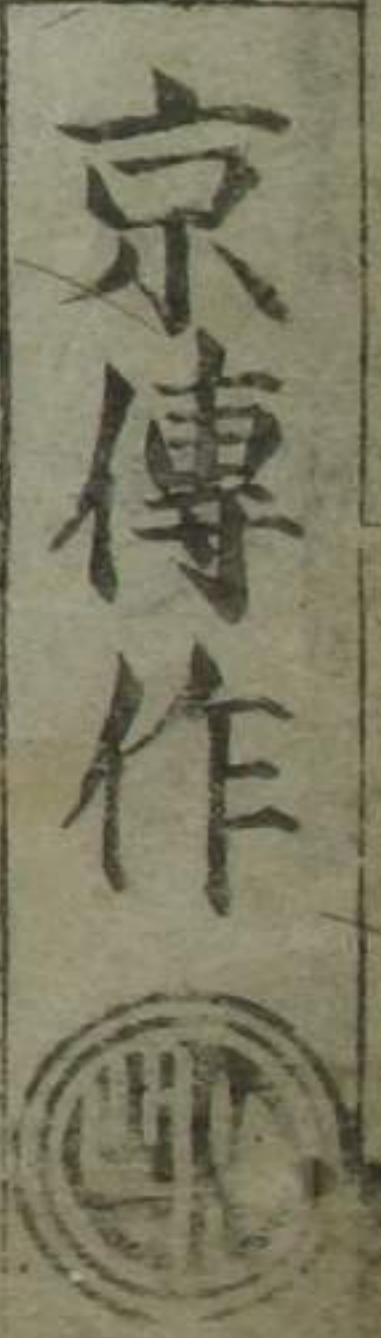 京傳作